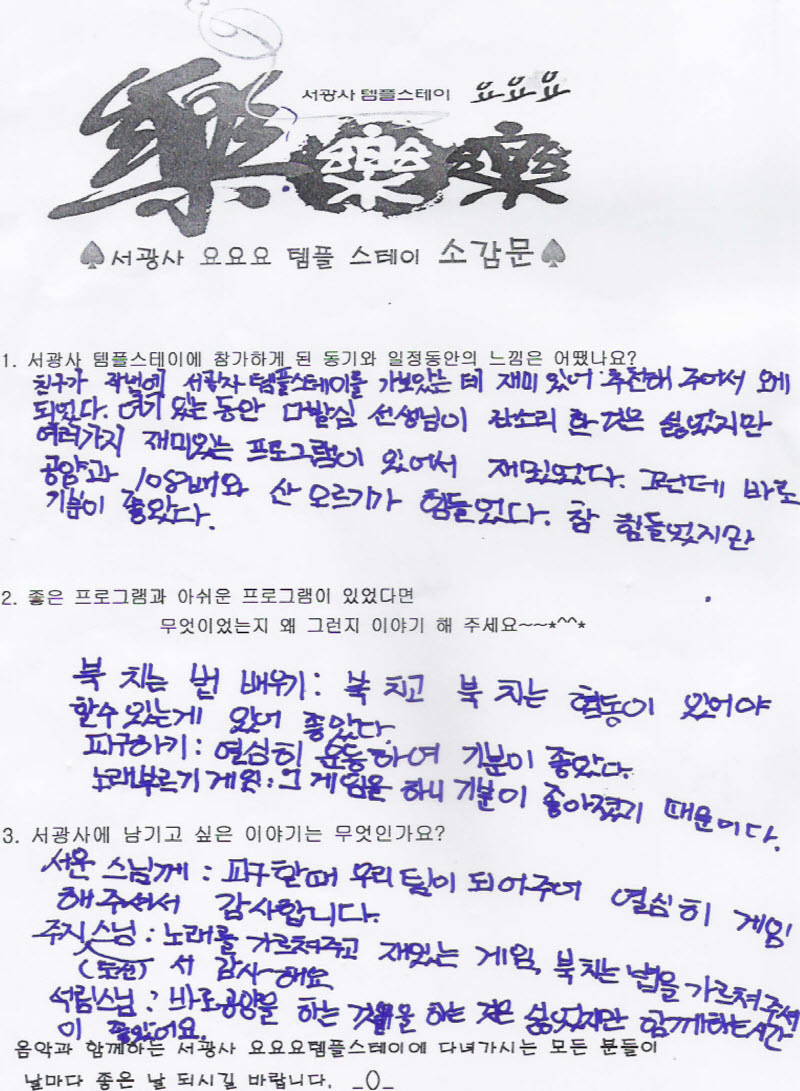 서광사 템플스테이 요요요
樂 樂 樂
♠서광사 요요요 템플 스테이 소감문♠
1. 서광사 템플스테이에 참가하게 된 동기와 일정동안의 느낌은 어땠나요?
친구가 저번에 서광사 템플스테이를 가보았는 데 재미 있어 추천해 주어서 오게
되었다. 여기 있는 동안 다발심 선생님이 잔소리 한 것은 싫었지만
여러가지 재미있는 프로그램이 있어서 재밌었다. 그런데 바로
공양과 108배와 산 오르기가 힘들었다. 참 힘들었지만
기분이 좋았다.
2. 좋은 프로그램과 아쉬운 프로그램이 있었다면
무엇이었는지 왜 그런지 이야기 해 주세요~~*^^*
북 치는 법 배우기: 북 치고 북 치는 협동이 있어야
할수 있는게 있어 좋았다.
피구하기: 열심히 운동하여 기분이 좋았다.
노래부르기 게임: 그 게임을 하니 기분이 좋아졌기 때문이다.
3. 서광사에 남기고 싶은 이야기는 무엇인가요?
서운 스님께: 피구할때 우리 팀이 되어주어 열심히 게임
해주셔서 감사합니다.
주지스님: 노래를 가르쳐주고 재밌는 게임, 북치는 법을 가르쳐주셔
(도신) 서 감사~해요
석림스님: 바로공양을 하는 것은 싫었지만 함께하는시간
이 좋았어요.
음악과 함께하는 서광사 요요요템플스테이에 다녀가시는 모든 분들이
날마다 좋은 날 되시길 바랍니다. _()_